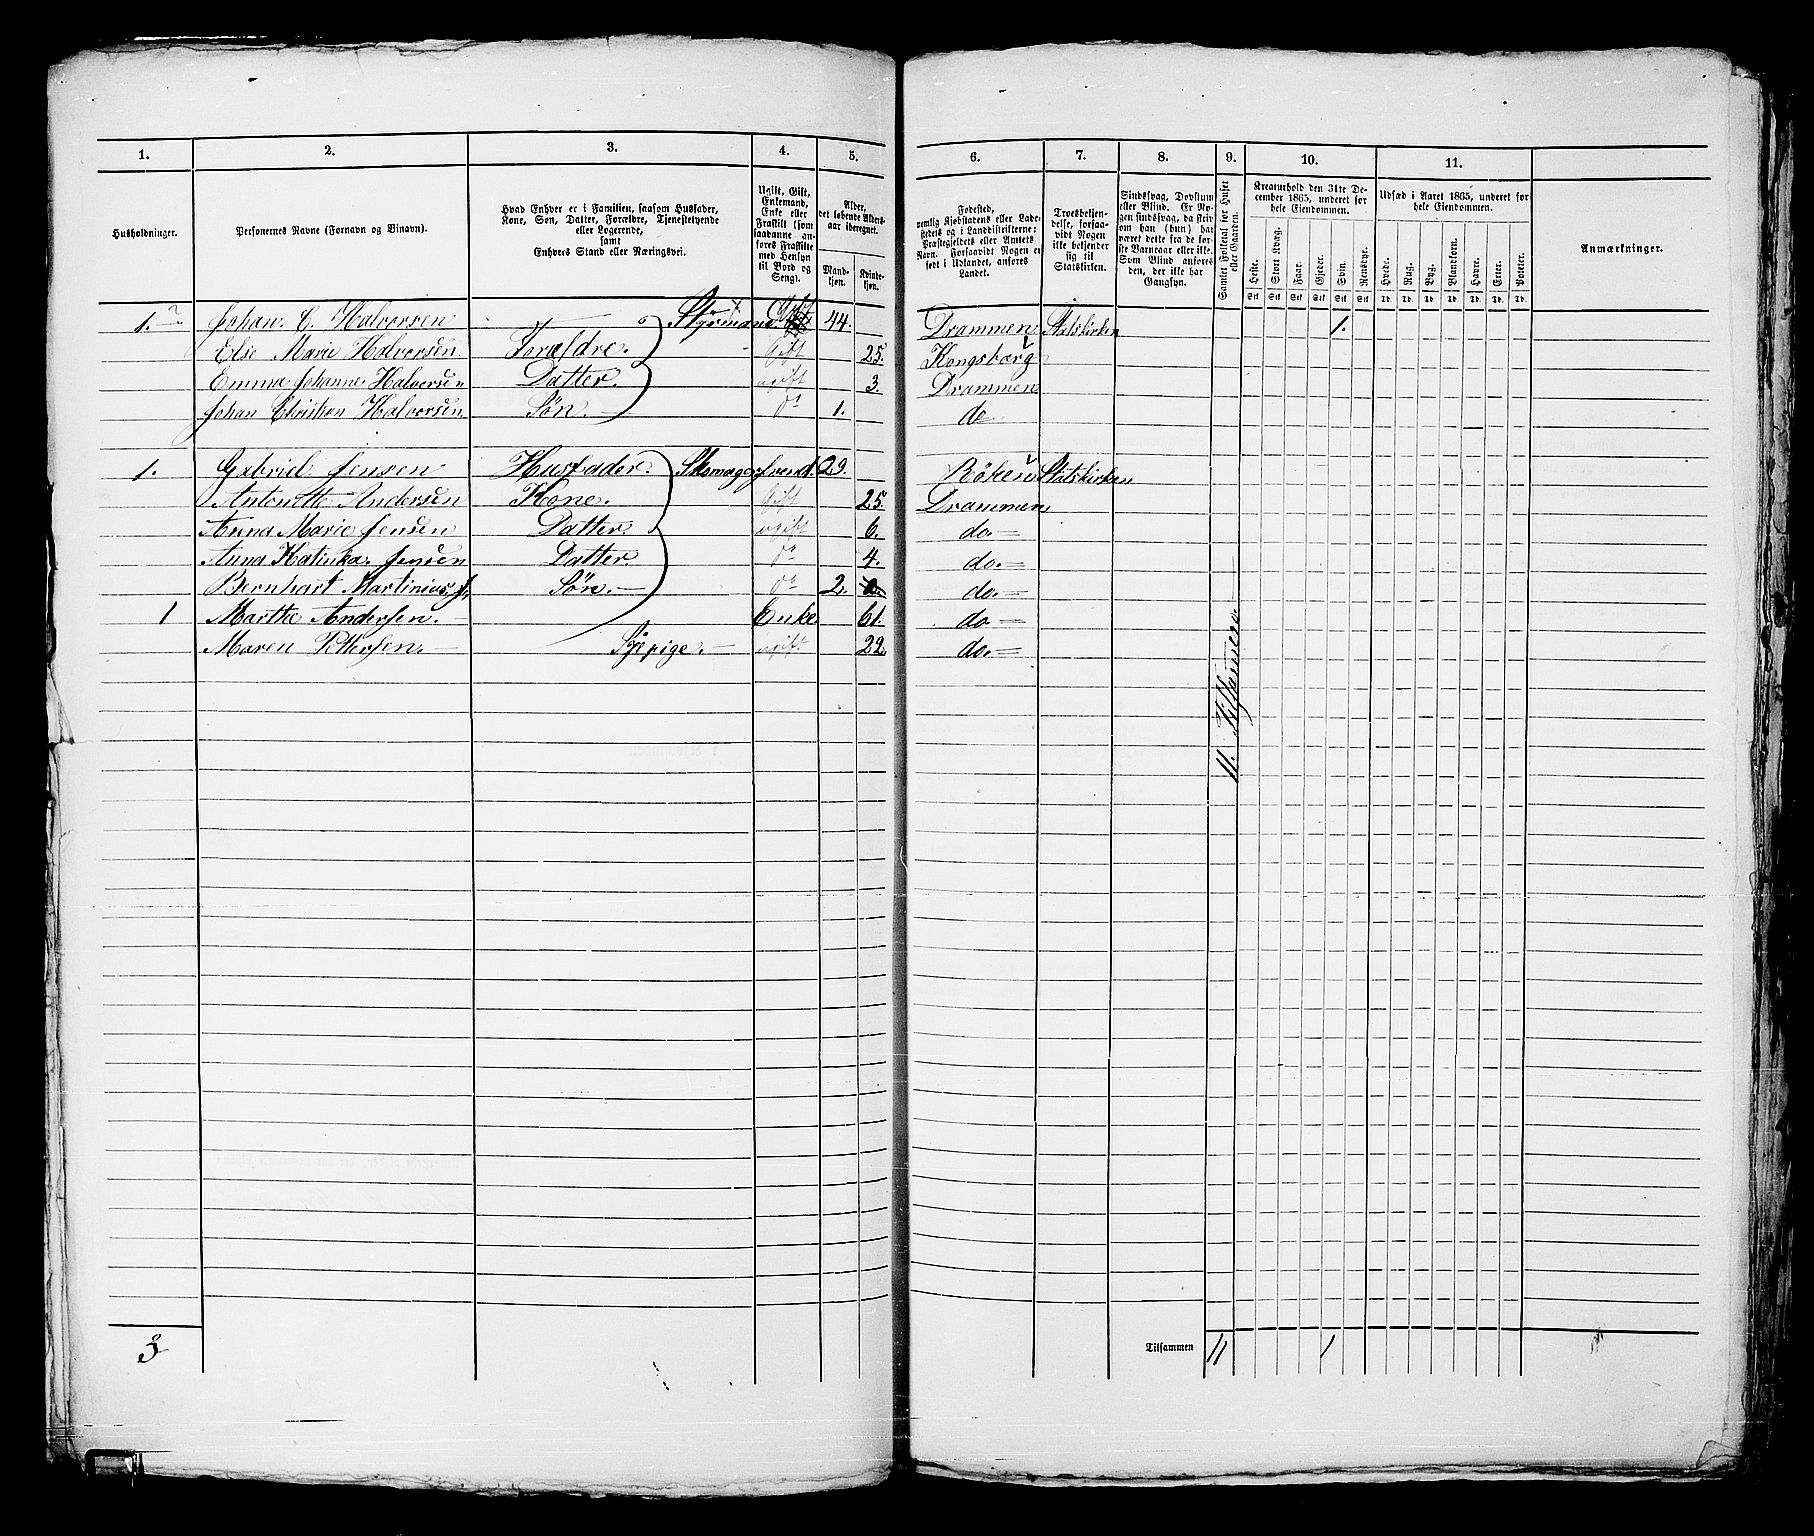 1. 2. 3. 4. 5. 6. 7. 8. 9. 10. 11.
Husholdninger.
Personernes Navne (Fornavn og Binavn).
Hvad Enhver er i Familien, saasom Husfader,
Kone, Søn, Datter, Forældre, Tjenestetyende
eller Logerende,
samt
Enhvers Stand eller Næringsvei.
Ugift, Gift,
Enkemand,
Enke eller
Fraskilt (som
saadanne an-
føres Fraskilte
med Hensyn
til Bord og
Seng).
Alder,
det løbende Alders-
aar iberegnet.
Mand-
kjøn.
Kvinde-
kjøn.
Fødested,
nemlig Kjøbstadens eller Lade-
stedets og i Landdistrikterne:
Præstegjeldets eller Amtets
Navn. Forsaavidt Nogen er
født i Udlandet, anføres
Landet.
Troesbekjen-
delse, forsaa-
vidt Nogen
ikke bekjender
sig til
Statskirken.
Sindssvag, Døvstum
eller Blind. Er No-
gen sindssvag, da skriv
om han (hun) har
været dette fra de før-
ste Barneaar eller ikke.
Som Blind anføres
den, der ikke har
Gangsyn.
Samlet Folketal for Huset
eller Gaarden.
Kreaturhold den 31te De-
cember 1865, underet for
hele Eiendommen.
Heste. Stort Kvæg. Faar. Gjeder. Svin. Rensdyr.
Stk Stk Stk Stk Stk Stk
Udsæd i Aaret 1865, underet for
hele Eiendommen.
Hvede. Rug. Byg. Blandkorn. Havre. Erter. Poteter.
Td. Td. Td. Td. Td. Td. Td.
Anmærkninger.
1. Johan. C. Halvorsen Styrmand. Gift 44. Drammen Statskirken 1.
Else Marie Halvorsen Forældre. Gift 25. Kongsberg
Emma Johanne Halvorsen Datter. ugift 3. Drammen
Johan Christian Halvorsen Søn. do 1. do
1. Gabriel Jensen Husfader. Skomagersvend. 29. Röken Statskirken
Antonette Andersen Kone. Gift 25. Drammen
Anna Marie Jensen Datter. ugift 6. do.
Anna Katinka. Jensen Datter. do 4. do.
Bernhart Martinius. J. Søn. do 2. do.
1 Marthe Andersen. Enke 61. do
Maren Pettersen. Sypige. ugift 22. do.
3 Tilsammen 11 1